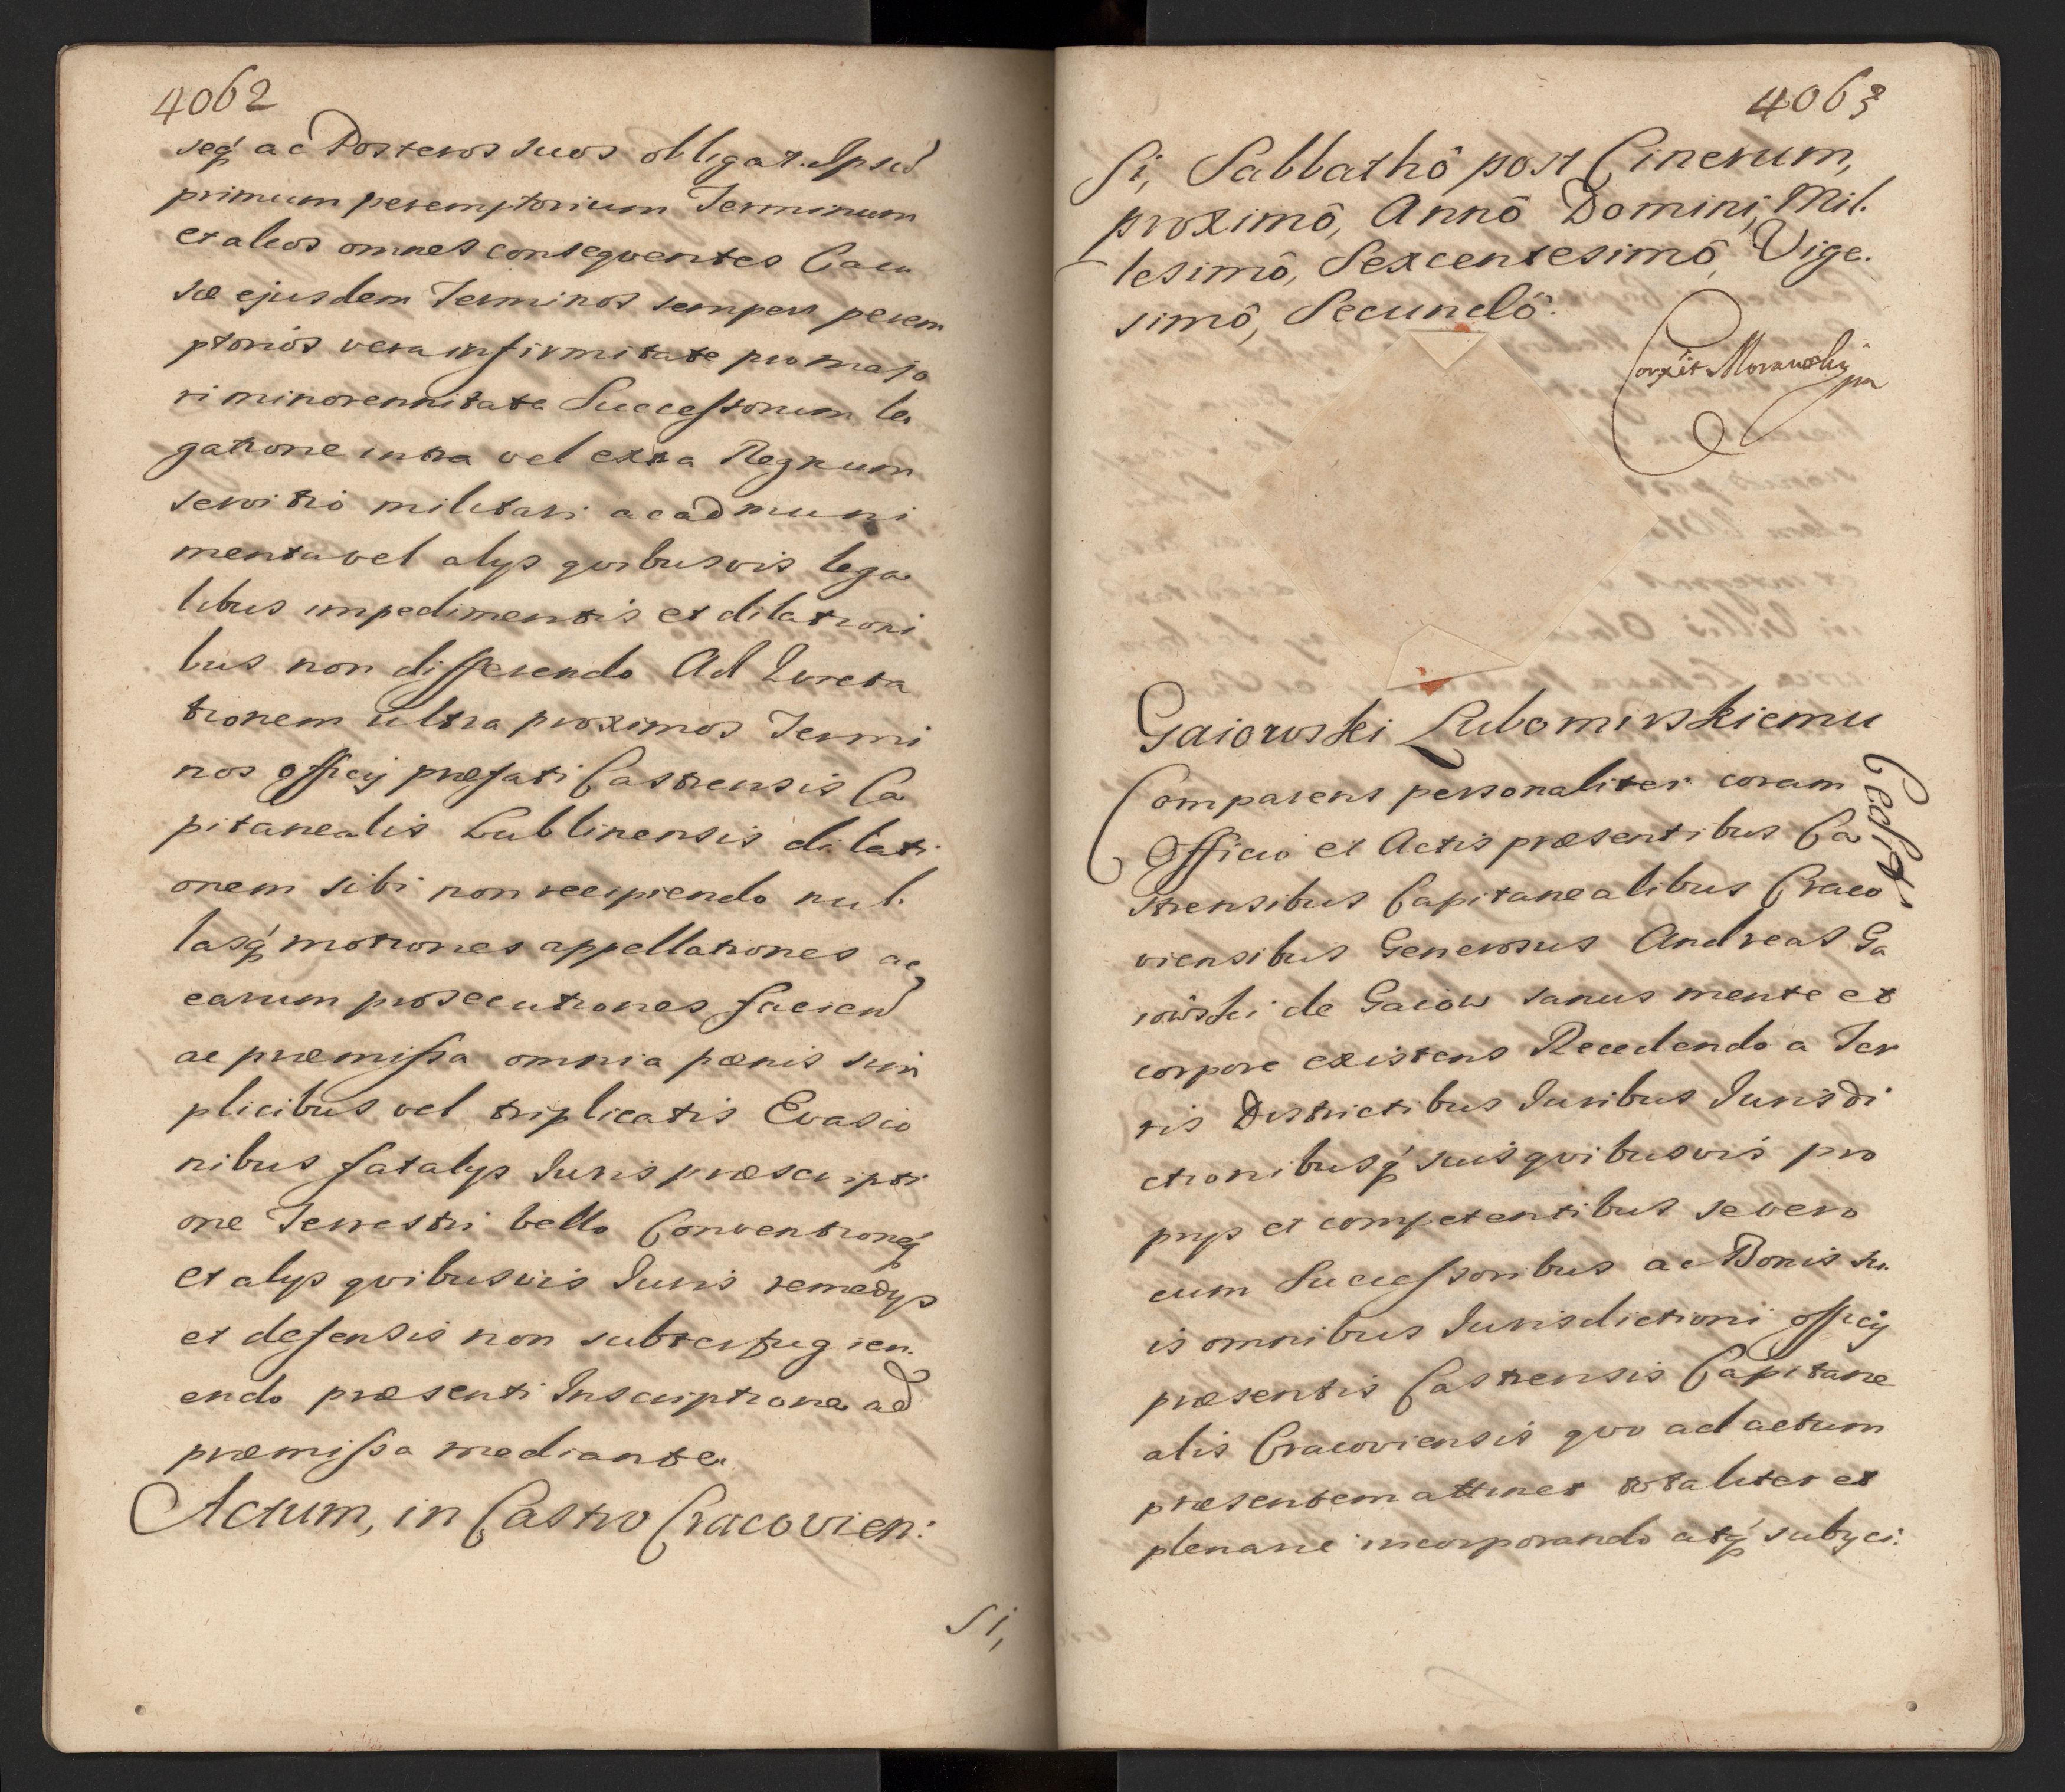 4062
seq́ ac Posteros suos obligat. Ipsū
primum peremptorium Terminum
et alios omnes conseqventes Cau
sæ ejusdem Terminos semper perem
ptoriós vera infirmitate pro majo
ri minorennitate Successorum le
gatione intra vel extra Regnum
servitió militari ac ad muni
menta vel alys qvibusvis lega
libus impedimentis et dilationi
bus non differendo Ad
tionem ultra proximos Termi
nos officij præfati Castrensis Ca
pitanealis Lublinensis dilati
onem sibi non recipiendo nul.
lasq́ motiones appellationes ac
earum prosecutiones faciend
ac præmissa omnia pœnis sim
plicibus vel triplicatis Evasio
nibus fatalys Juris præscripti
one Terrestri bello Conventioneq́
et alys qvibusvis Juris remedys
et defensis non subterfugien.
endo præsenti Inscriptione ad
præmissa mediante.
Actum, in Castro Cracovien:
si,
4063
Si, Sabbathô post Cinerum,
proximô, Annô Domini, Mil.
lesimô, Sexcentesimô, Vige.
simô, Secundô.
Corrxit Morawskij
mp
Gaiowski Lubomirskiemu
Cessit.
Comparens personaliter coram
Officio et Actis præsentibus Ca
strensibus Capitanealibus Craco
viensibus Generosus Andreas Ga
iowski de Gaiow sanus mente et
corpore existens Recedendo a Ter
ris Districtibus Juribus Jurisdi
ctionibusq́ suis qvibusvis pro
prys et competentibus se vero
cum Successoribus ac Bonis su.
is omnibus Jurisdictioni officij
præsentis Castrensis Capitane
alis Cracoviensis qvo ad actum
præsentem attinet totaliter et
plenarie incorporando atq́ subyci.